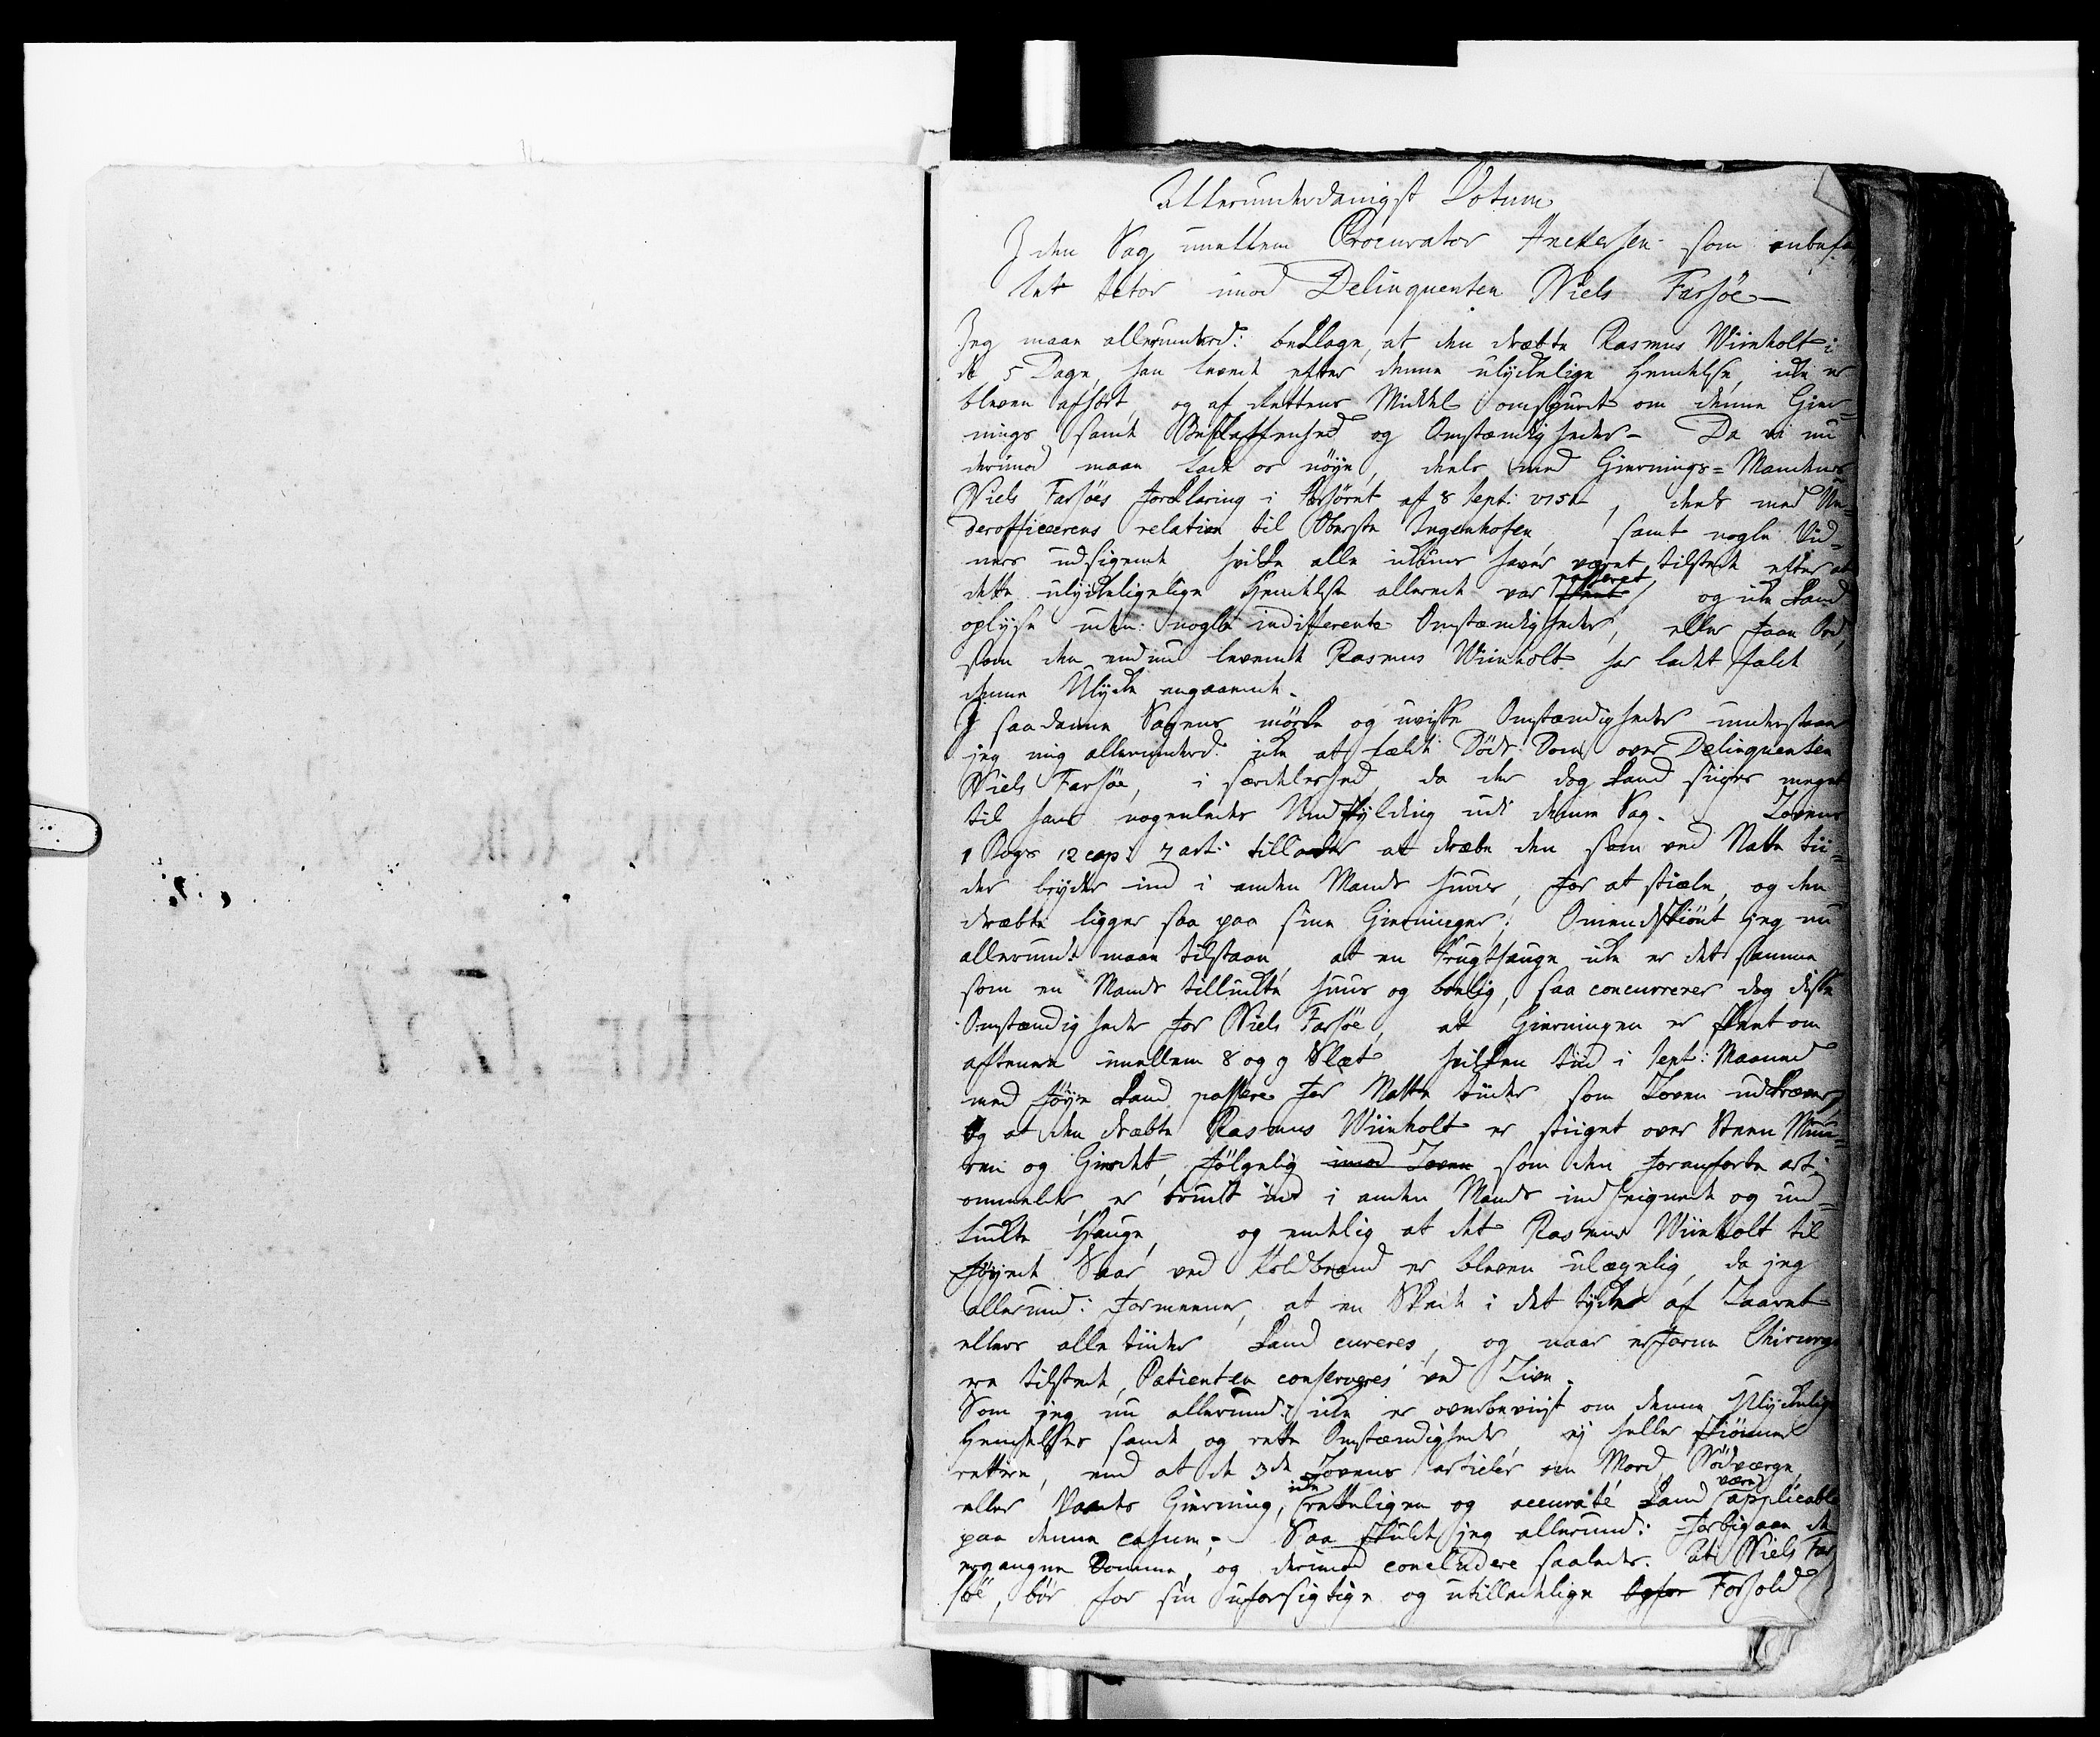 Allerunderdanigst Votum
I den Sag imellem Procurator Anckersen som anbefa
let Actor imod Delinquenten Niels Farsöe
Jeg maae allerunderd: beklage, at den dræbte Rasmus Wiinholt i
de 5 Dage, han levede efter denne ulyckelige Hendelse, icke er
bleven afhört, og af Rettens Middel omspurdt om denne Gier¬
nings sande Beskaffenhed og Omstændigheder. Da vi nu
derimod maae lade os nöye, deels med Giernings-Mandens
Niels Farsöes Forklaring i Forhöret af 8 Sept: 1751, deels med Un¬
derofficeerens relation til Oberste Ingenhofen, samt nogle Vid¬
ners udsigende, hvilke alle ickuns haver været tilstede efter at
dette ulyckeligelige Hendelse allerede var skeet passeret, og icke kand
oplyse uden nogle indifferente Omstændigheder, eller faae Ord,
som den endnu levende Rasmus Wiinholt har ladet falde
denne Ulycke angaaende.
I saadanne Sagens mörke og uvisse Omstændigheder understaaer
jeg mig allerunderd: icke at fælde Döds Dom over Delinquenten
Niels Farsöe, i særdeleshed, da der dog kand siiges meget
til hans nogenledes Undskylding udi denne Sag. Lovens
1 Bogs 12 cap: 7 art: tillader at dræbe den som ved Natte tii¬
der bryder ind i anden Mands huus, for at stiæle, og den
dræbte ligger saa paa sine Gierninger. Omendskiönt jeg nu
allerund: maae tilstaae, at en Frugthauge icke er det samme
som en Mands tillugte huus og bolig, saa concurrerer dog disse
Omstændigheder for Niels Farsöe, at Gierningen er skeet om
aftenen imellem 8 og 9 Slæt, hvilken tiid i Sept: Maaned
med föye kand passere for Natte tiider som Loven udkræver,
Og at den dræbte Rasmus Wiinholt er stiiget over Steen Muu¬
ren og Gierdet, fölgelig imod Loven som den foranförte art:
ommelder, er brudt ind i anden Mands indheignede og ind¬
lugte Hauge, og endelig at det Rasmus Wiinholt til
föyede Saar ved Koldbrand er bleven ulægelig, da jeg
allerund: formeener, at en Skade i det tycke af Laaret
ellers alle tiider kand cureres, og naar erfarne Chirurgi
ere tilstede, Patienten conserveres ved Live.
Som jeg nu allerund: icke er overbeviist om denne Ulyckelige
Hendelses sande og rette Omstændigheder ej heller skiönner
rettere, end at de 3de Lovens articler om Mord, Nödværge
eller Vaades Gierning, icke retteligen og accurate kand være applicable
paa denne casum; Saa skulde jeg allerund: forbigaae de
ergangne Domme, og derimod concludere saaledes. At Niels Far
söe, bör for sin uforsigtige og utilladelige Opför Forhold